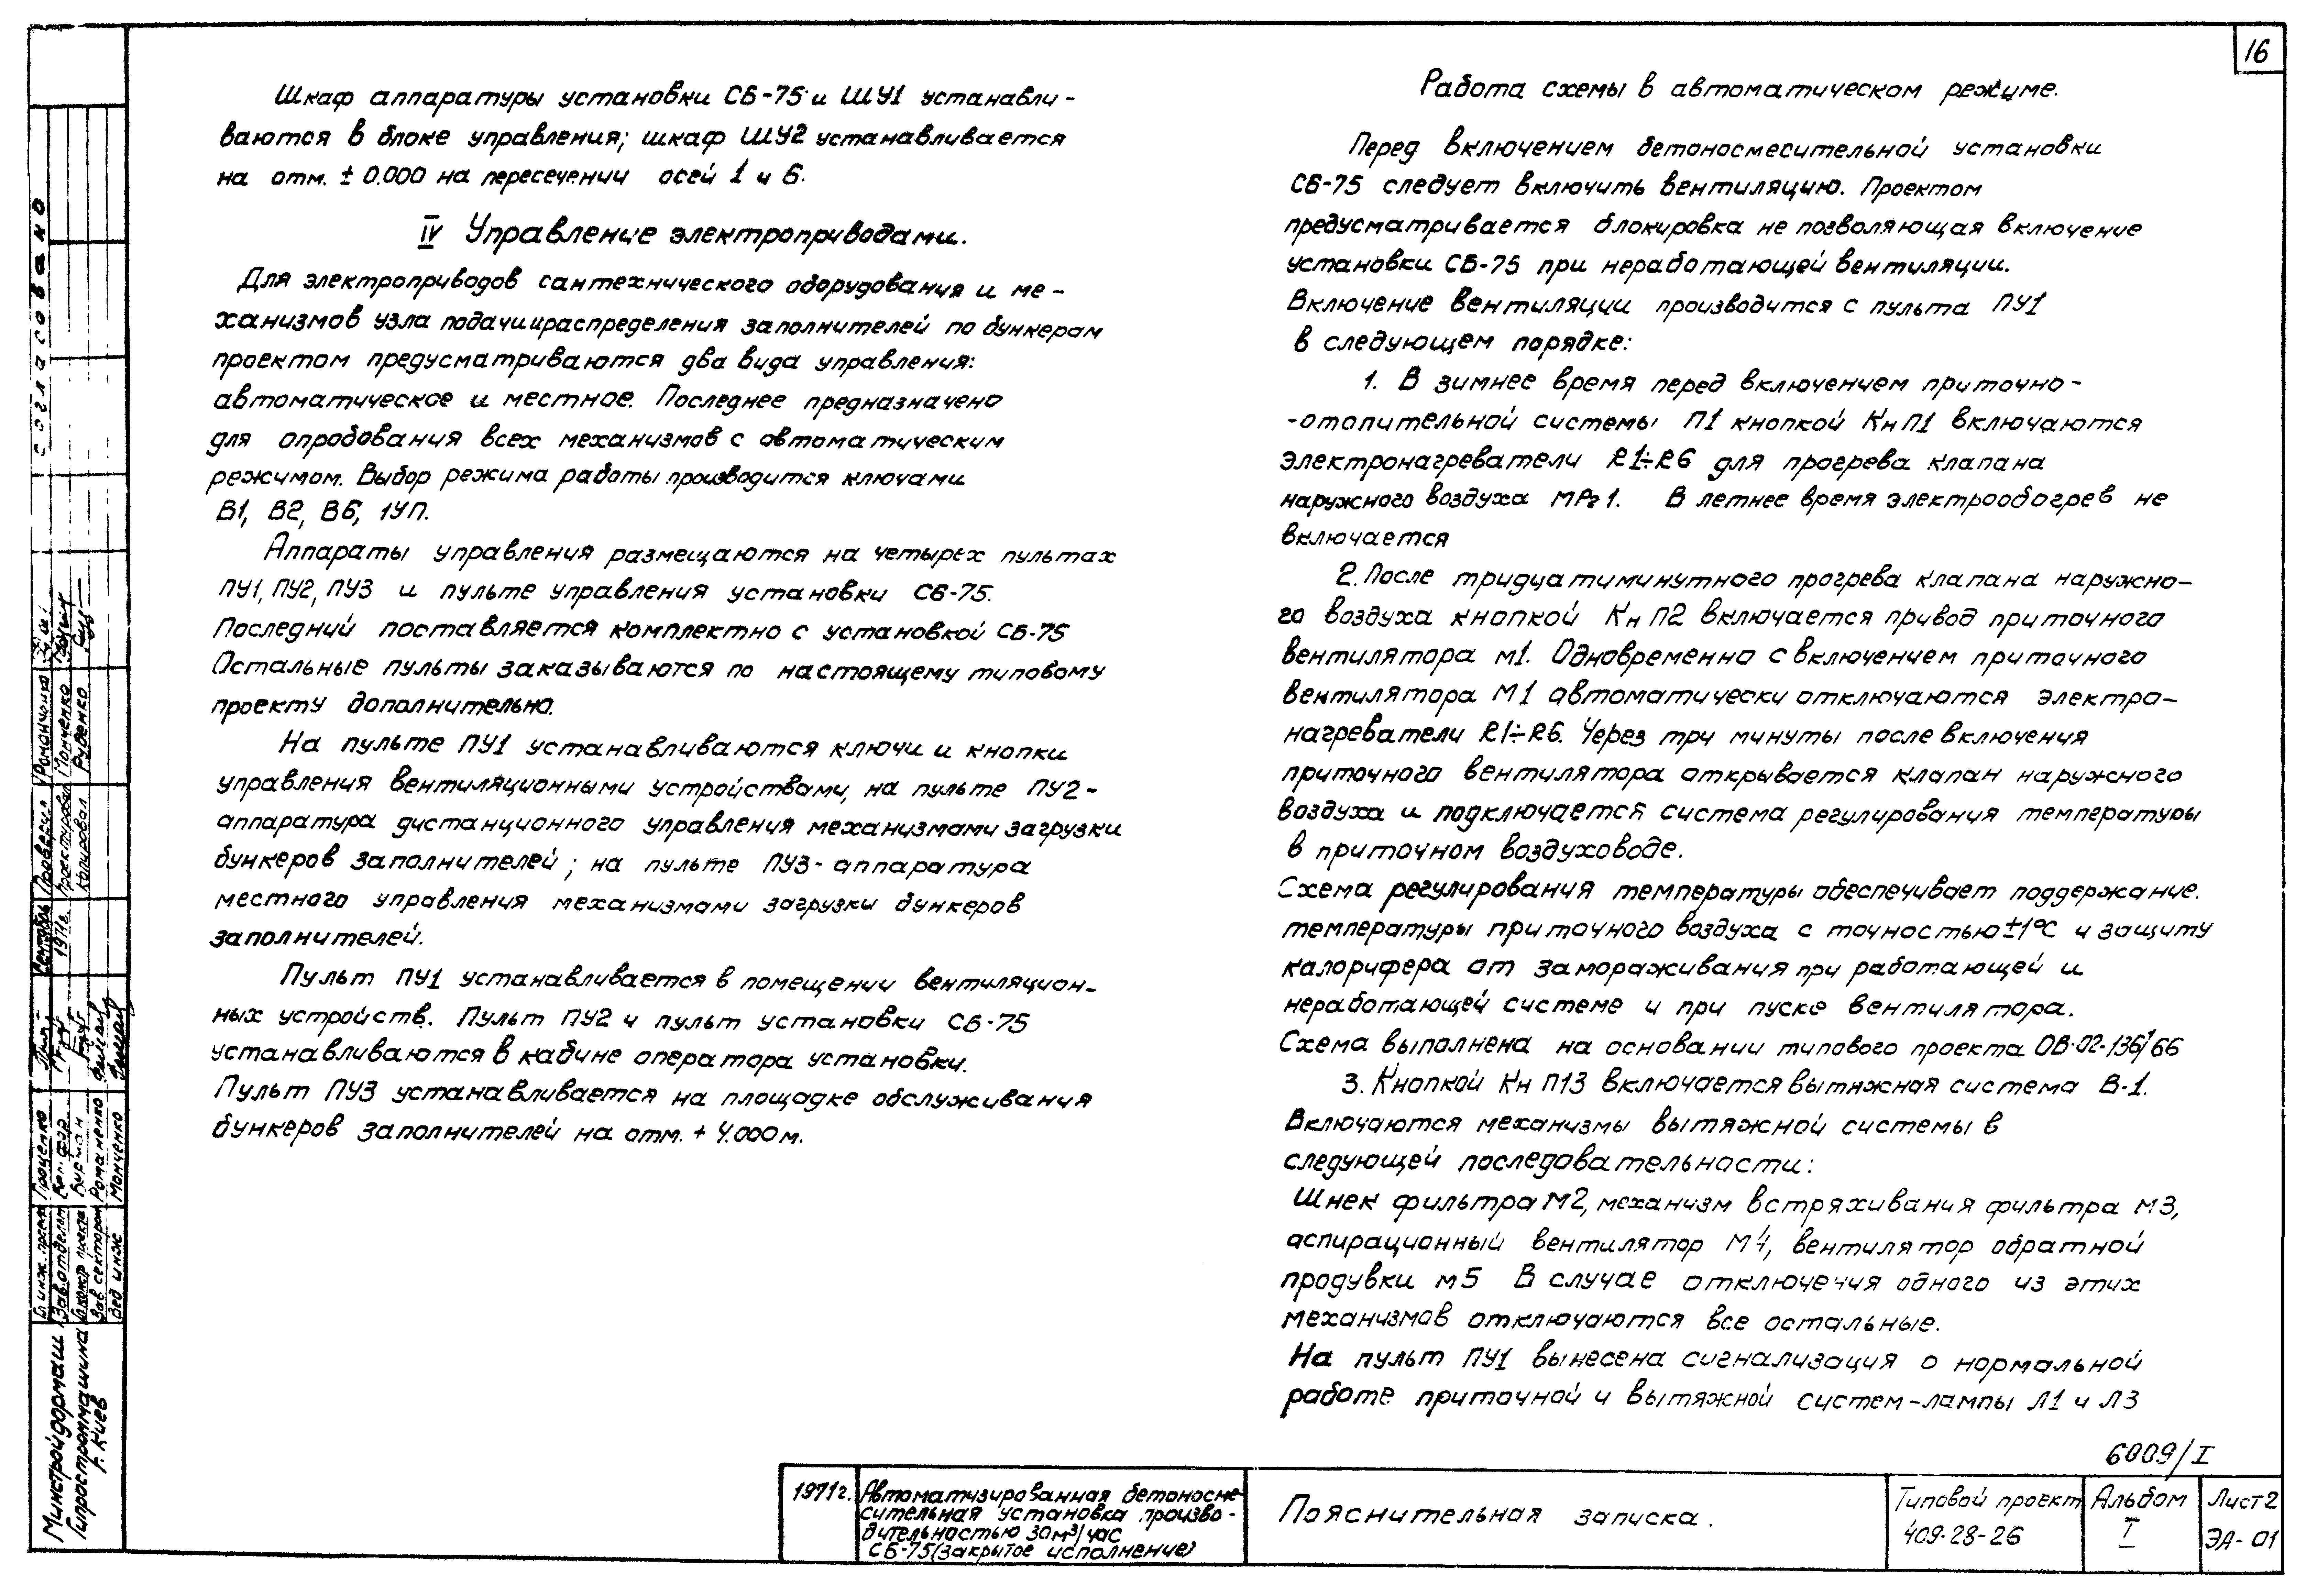 16
Шкаф аппаратуры установки СБ-75 и ШУ1 устанавли-
ваются в блоке управления; шкаф ШУ2 устанавливается
на отм. ± 0.000 на пересечении осей 1 и Б.
IV Управление электроприводами.
Для электроприводов сантехнического оборудования и ме-
ханизмов узла подачи и распределения заполнителей по бункерам
проектом предусматриваются два вида управления:
автоматическое и местное. Последнее предназначено
для опробования всех механизмов с автоматическим
режимом. Выбор режима работы производится ключами
В1, В2, В6, 1УП.
Аппараты управления размещаются на четырех пультах
ПУ1, ПУ2, ПУ3 и пульте управления установки СБ-75.
Последний поставляется комплектно с установкой СБ-75
Остальные пульты заказываются по настоящему типовому
проекту дополнительно.
На пульте ПУ1 устанавливаются ключи и кнопки
управления вентиляционными устройствами, на пульте ПУ2-
аппаратура дистанционного управления механизмами загрузки
бункеров заполнителей; на пульте ПУ3-аппаратура
местного управления механизмами загрузки бункеров
заполнителей.
Пульт ПУ1 устанавливается в помещении вентиляцион-
ных устройств. Пульт ПУ2 и пульт установки СБ-75
устанавливаются в кабине оператора установки.
Пульт ПУ3 устанавливается на площадке обслуживания
бункеров заполнителей на отм. + 4.000 м.
Работа схемы в автоматическом режиме.
Перед включением бетоносмесительной установки
СБ-75 следует включить вентиляцию. Проектом
предусматривается блокировка не позволяющая включение
установки СБ-75 при неработающей вентиляции.
Включение вентиляции производится с пульта ПУ1
в следующем порядке:
1. В зимнее время перед включением приточно-
-отопительной системы П1 кнопкой КнП1 включаются
электронагреватели R1÷R6 для прогрева клапана
наружного воздуха МРг1. В летнее время электрообогрев не
включается
2. После тридцатиминутного прогрева клапана наружно-
го воздуха кнопкой Кн П2 включается привод приточного
вентилятора м1. Одновременно с включением приточного
вентилятора М1 автоматически отключаются электро-
нагреватели R1÷R6. Через три минуты после включения
приточного вентилятора открывается клапан наружного
воздуха и подключается система регулирования температуры
в приточном воздуховоде.
Схема регулирования температуры обеспечивает поддержание.
температуры приточного воздуха с точностью ±1°С и защиту
калорифера от замораживания при работающей и
неработающей системе и при пуске вентилятора.
Схема выполнена на основании типового проекта ОВ-02-136/66
3. Кнопкой Кн П13 включается вытяжная система В-1.
Включаются механизмы вытяжной системы в
следующей последовательности:
Шнек фильтра М2, механизм встряхивания фильтра М3,
аспирационный вентилятор М4, вентилятор обратной
продувки м5 В случае отключения одного из этих
механизмов отключаются все остальные.
На пульт ПУ1 вынесена сигнализация о нормальной
работе приточной и вытяжной систем-лампы Л1 и Л3
6009/I
1971г.
Автоматизированная бетоносме-
сительная установка произво-
дительностью 30м³/час
СБ-75 (закрытое исполнение)
Пояснительная записка.
Типовой проект
409-28-26
Альбом
I
Лист 2
ЭА-01
Согласовано
Проверил Романченко
Проектировал Монченко
Копировал Руденко
Сентябрь
1971г.
Гл. инж. Проценко
Зав. отделом
Гл. констр. проекта Буртан
Зав. сектором Романенко
Вед инж Монченко
Минстройдормаш
Гипростроммашина
г. Киев